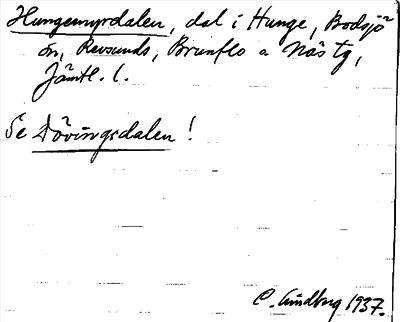 Hungemyrdalen, dal i Hunge, Bodsjö
sn, Revsunds, Brunflo o Näs tg,
Jämtl. l.
Se Dövingsdalen!
C. Lindberg 1937.